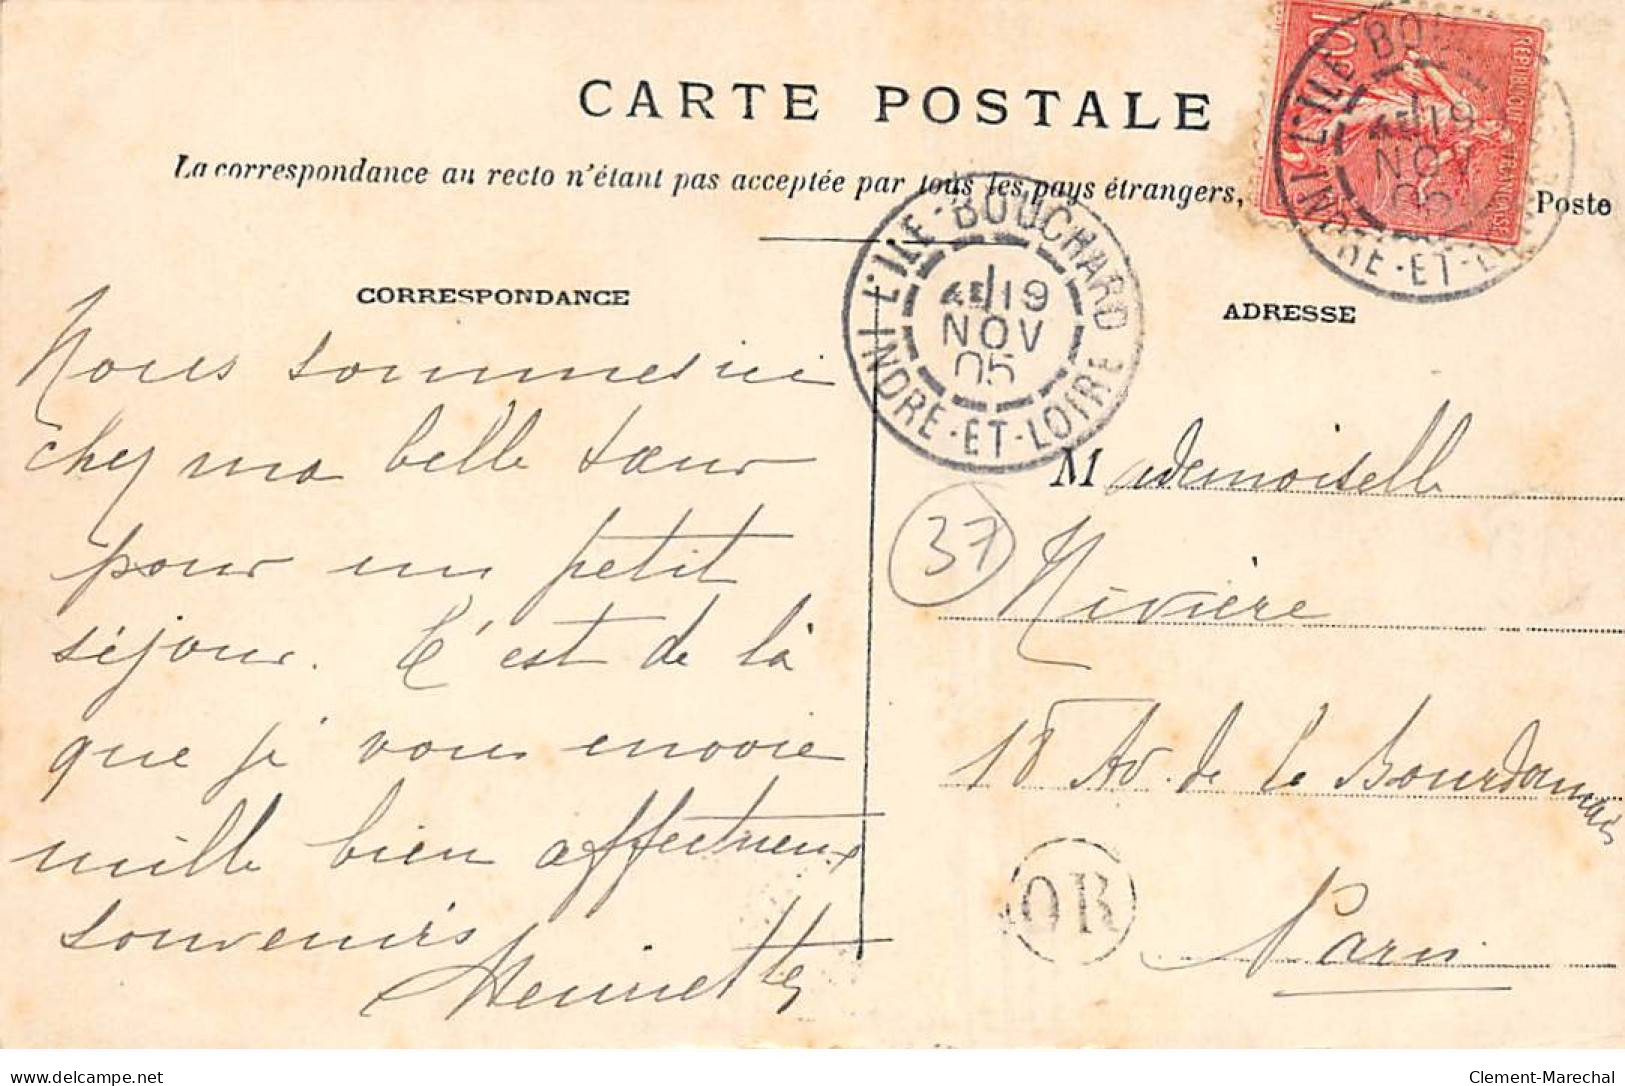 CARTE POSTALE
La correspondance au recto n'étant pas acceptée par tous les pays étrangers,
Poste
CORRESPONDANCE
Nous sommes ici
chez ma belle sœur
pour un petit
séjour. C'est de là
que je vous envoie
mille bien affectueux
souvenirs
Henriette
ADRESSE
Mademoiselle
Rivière
18 Av. de la Bourdonnais
Paris
37
OR
L'ILE-BOUCHARD
19
NOV
05
INDRE-ET-LOIRE
L'ILE BOU
19
NOV
05
INDRE-ET-LOIRE
10
REPUBLIQUE FRANÇAISE
delcampe.net
Clement-Marechal